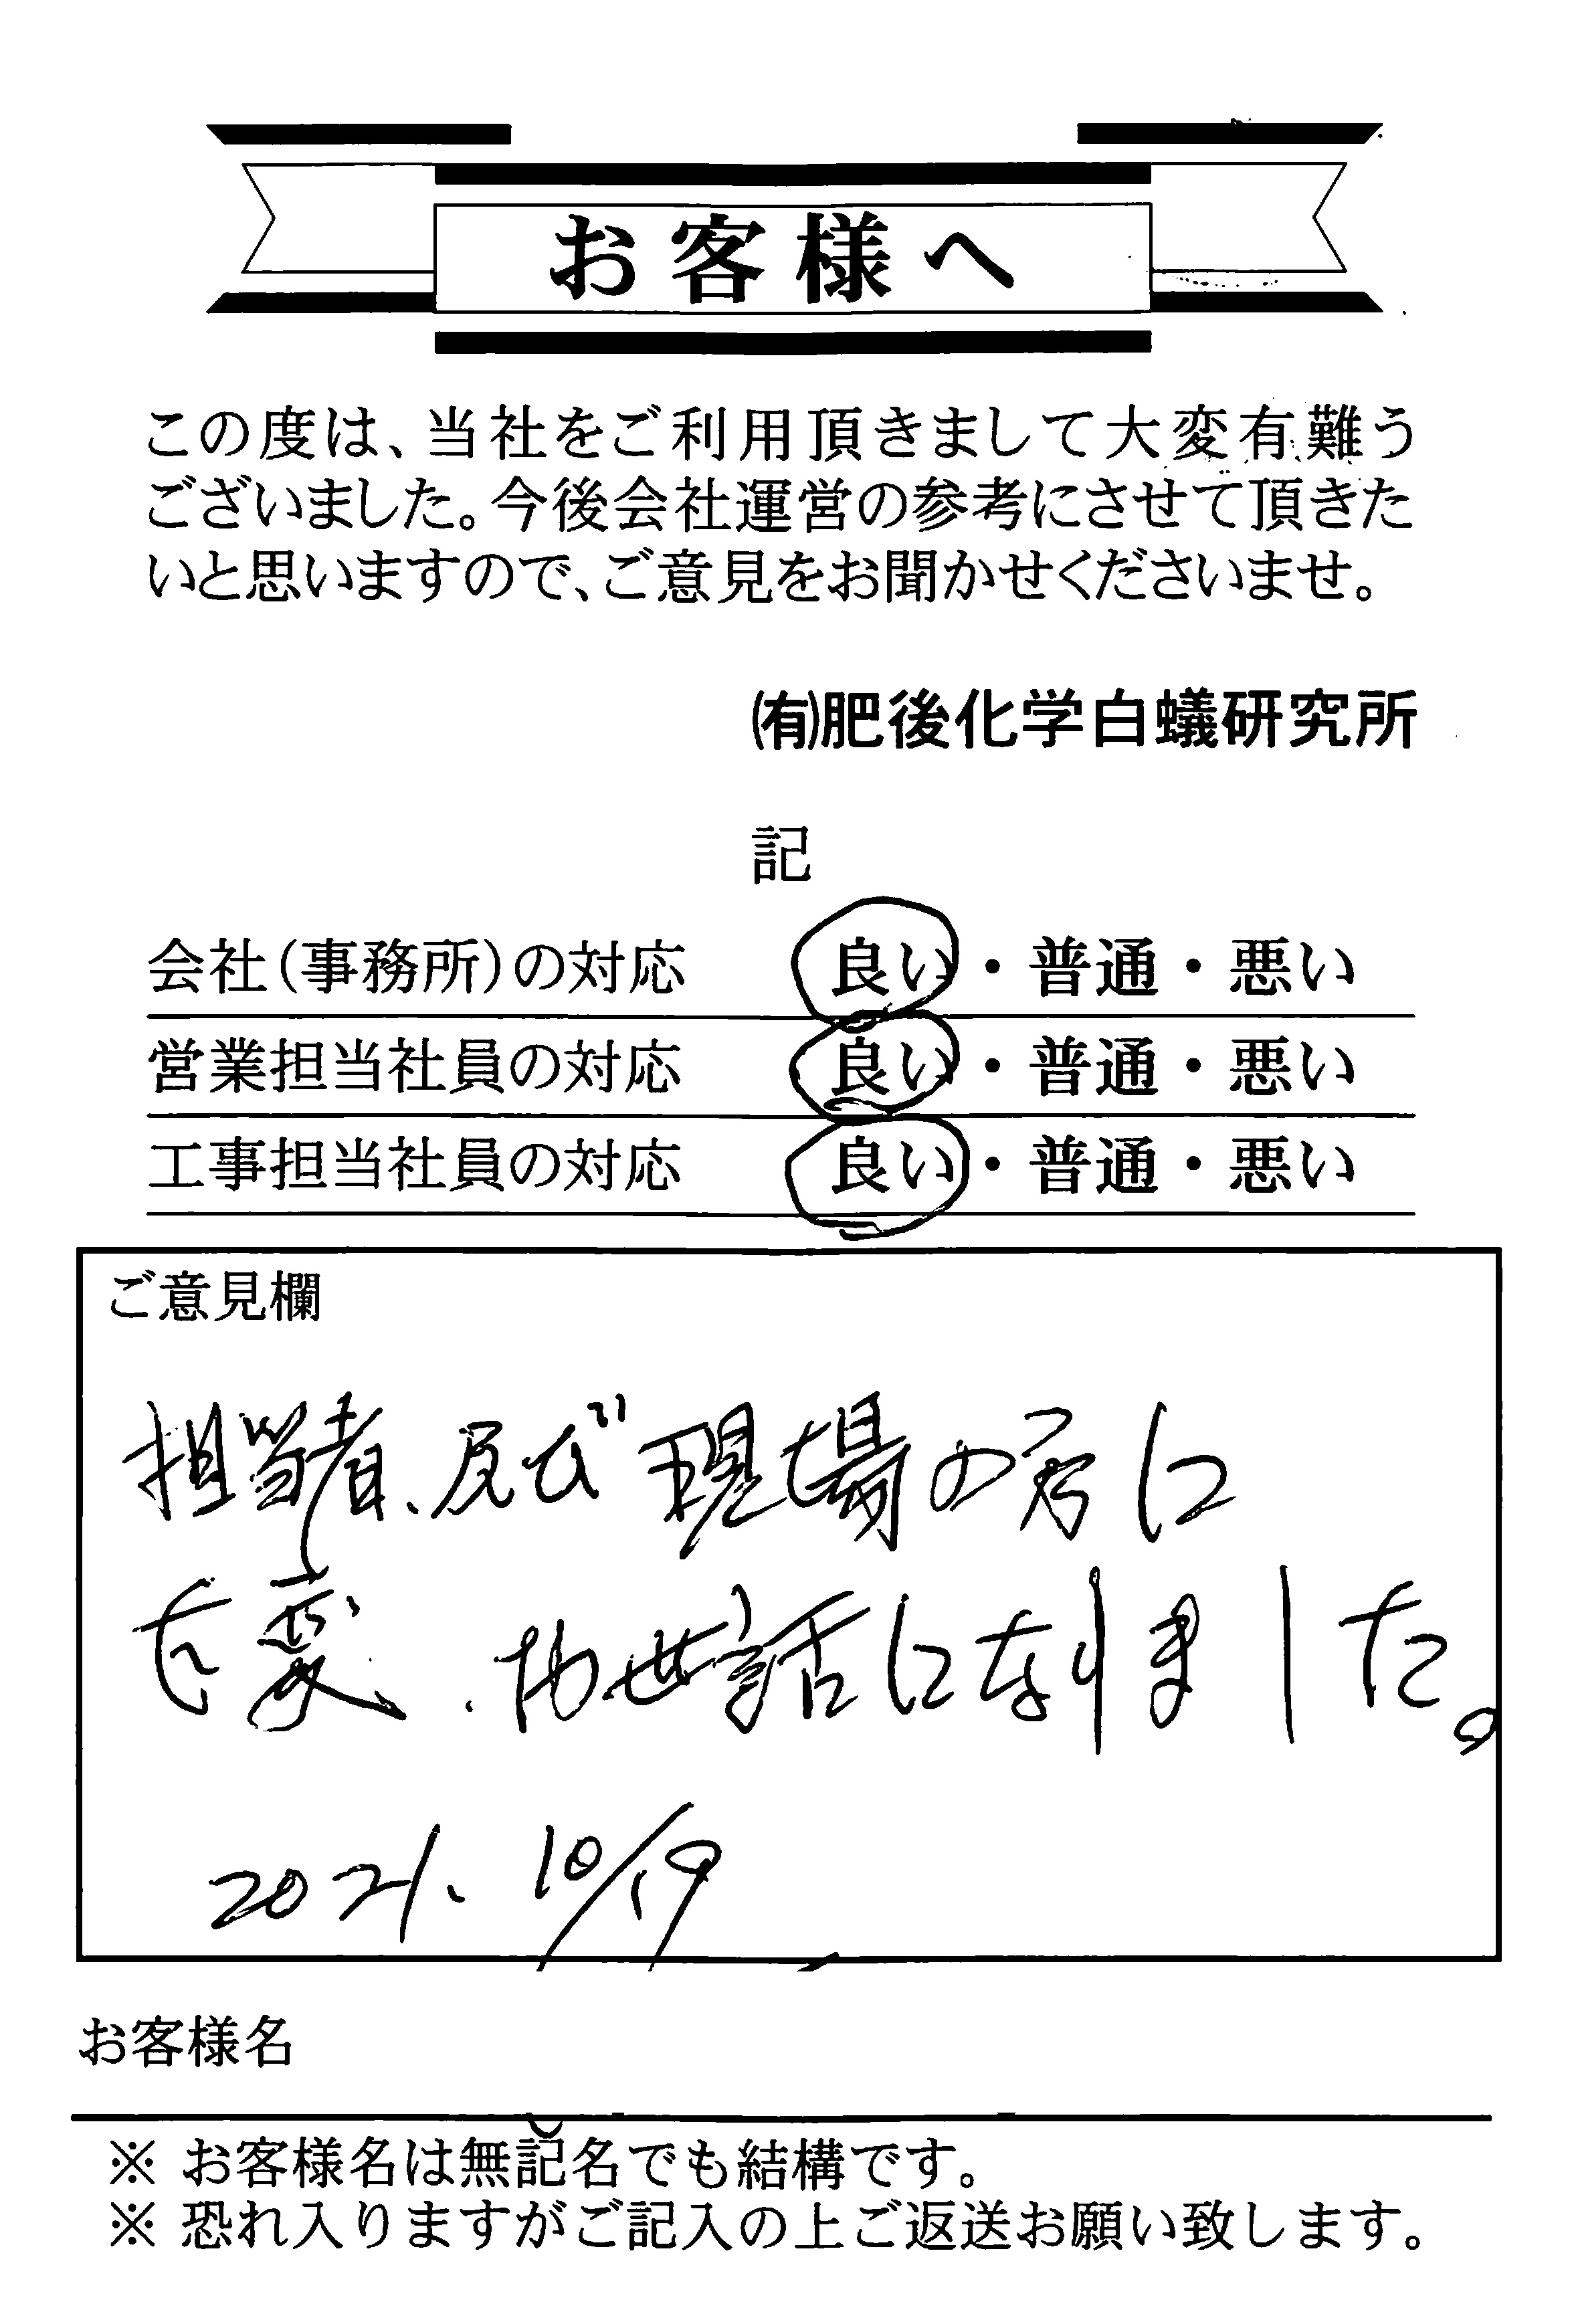 お客様へ
この度は、当社をご利用頂きまして大変有難う
ございました。今後会社運営の参考にさせて頂きた
いと思いますので、ご意見をお聞かせくださいませ。
㈲肥後化学白蟻研究所
記
会社(事務所)の対応 良い・普通・悪い
営業担当社員の対応 良い・普通・悪い
工事担当社員の対応 良い・普通・悪い
ご意見欄
担当者、及び現場の方に
大変、お世話になりました。
2021. 10/19
お客様名
※ お客様名は無記名でも結構です。
※ 恐れ入りますがご記入の上ご返送お願い致します。